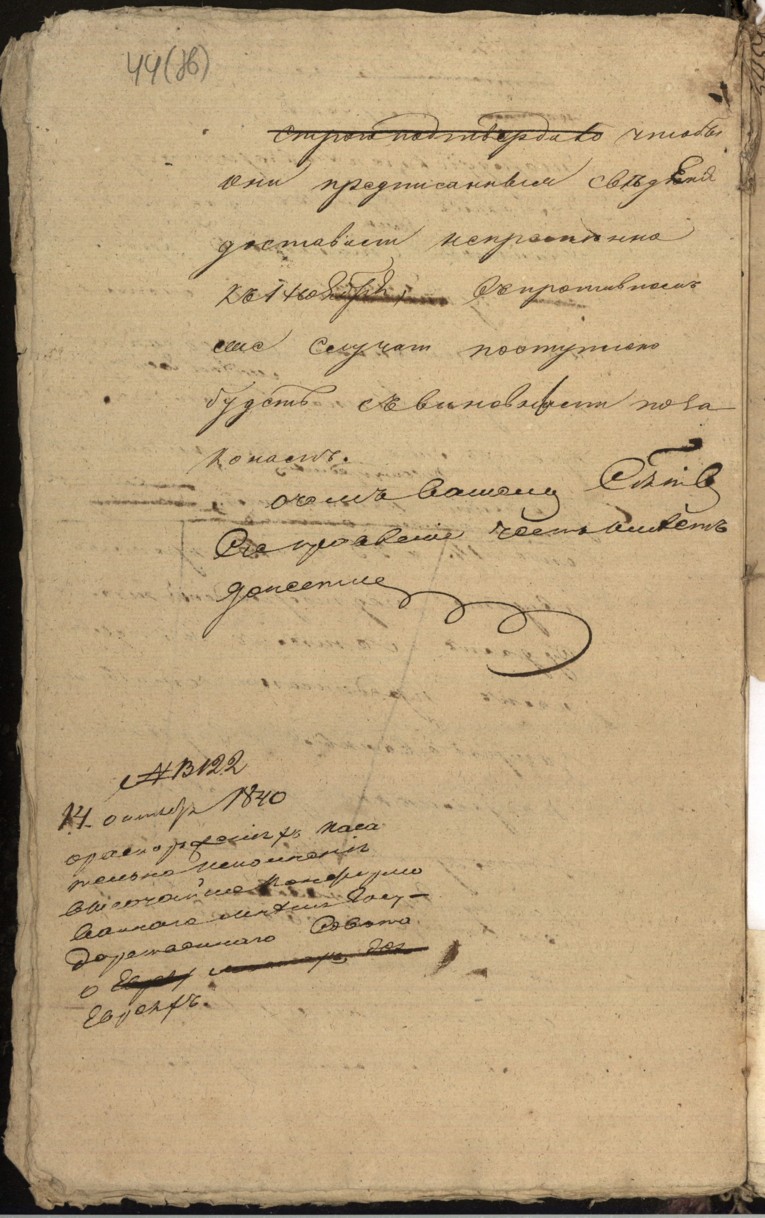 44(об)
строго подтвердило чтобы
они предписанныя сведения
доставили непременно
къ 1 ноября, въ противномъ
случаи поступлено
будетъ съ виновными по за
конамъ.
о чемъ вашему
правление честь имеетъ
донести
№ 3122
14 октября 1840
о распоряженiяхъ каса
тельно исполненiя
высочайше конфирмо
ваннаго мнѣнiя Госу-
дарственнаго Совета
о
Евреяхъ.